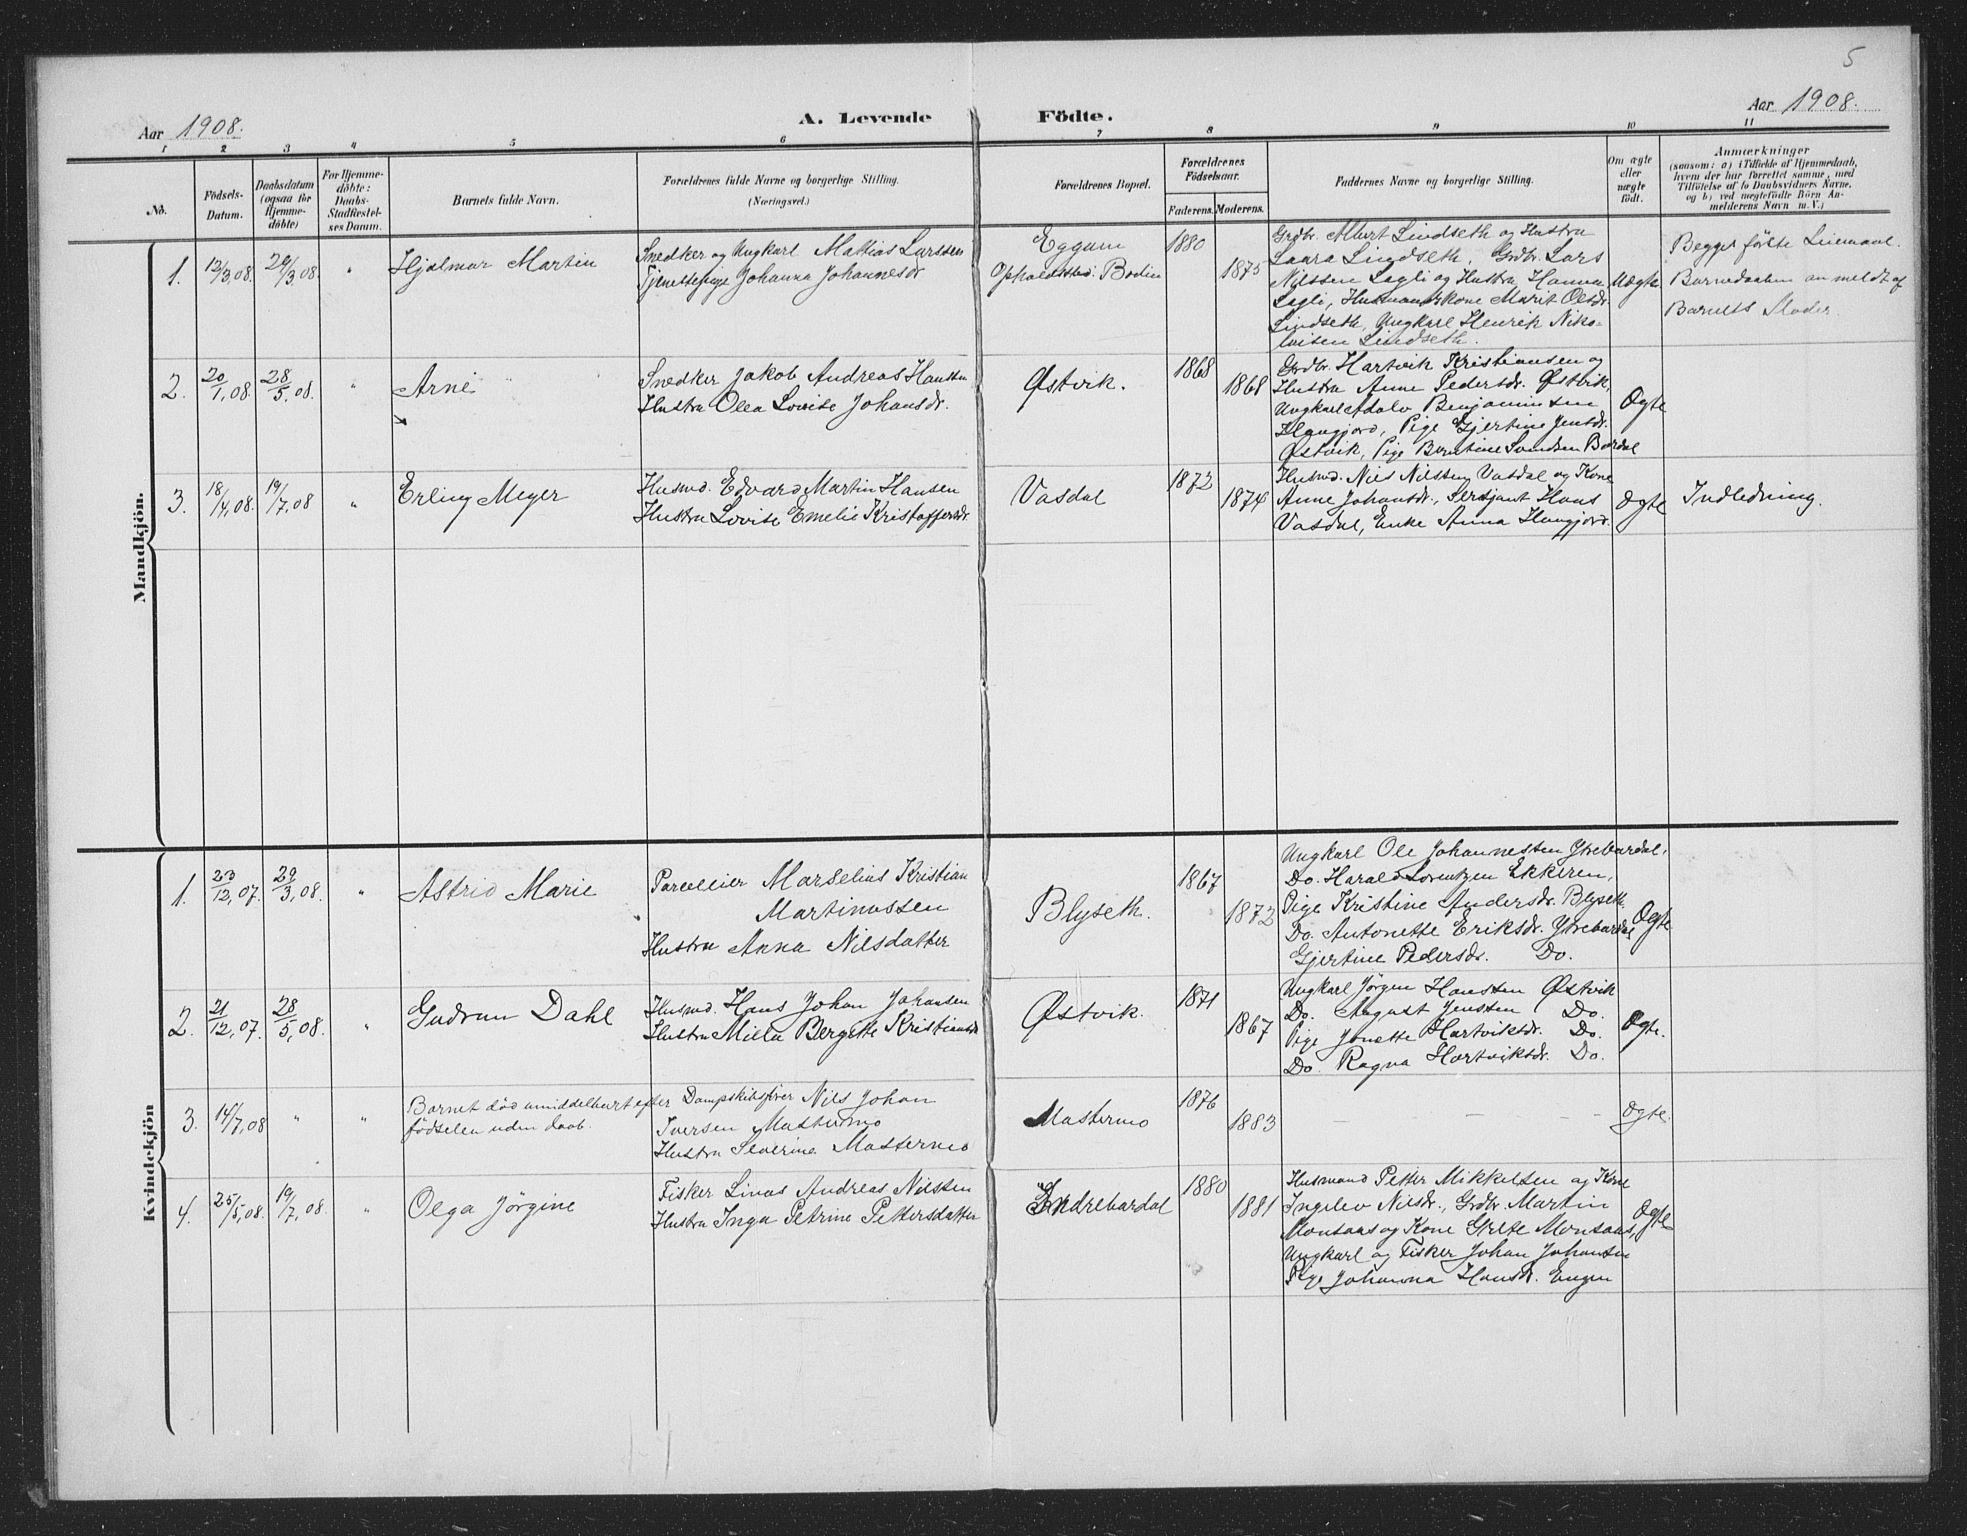 5
Aar 1908.
A. Levende Fôdte.
Aar 1908.
1 2 3 4 5 6 7 8 9 10 11
No.
Födsels-
Datum.
Daabsdatum
(ogsaa for
Hjemme-
döbte)
For Hjemme-
döbte:
Daabs-
Stadfæstel-
ses Datum.
Barnets fulde Navn.
Forældrenes fulde Navne og borgerlige Stilling.
(Næringsvei.)
Forældrenes Bopæl.
Forældrenes
Födselsaar.
Faderens. Moderens.
Faddernes Navne og borgerlige Stilling.
Om ægte
eller
uægte
födt.
Anmærkninger
(saasom: a) i Tilfælde af Hjemmedaab,
hvem der har forrettet samme, med
Tilföielse af to Daabsvidners Navne,
og b) ved uægtefödte Börn An-
melderens Navn m. V.)
Mandkjön.
1. 12/3,08. 29/3,08. " Hjalmar Martin
Snedker og Ungkarl Mattias Larssen
Tjenestepige Johanna Johannesdr
Eggum
Opholdssted: Bodin
1880
1875
Grdbr. Albert Lindseth og Hustru
Laura Lindseth, Grdbr. Lars
Nilssen Lagli og Hustru Hanna
Lagli, Husmandskone Marit Olsdr.
Lindseth, Ungkarl Henrik Niko-
laisen Lindseth.
Uægte
Begges første Leiermaal.
Barnedaaben anmeldt af
Barnets Moder.
2. 20/1,08. 28/5,08. " Arne
Snedker Jakob Andreas Hanssen
Hustru Olea Lovise Johansdr.
Østvik.
1868
1868
Grdbr. Hartvik Kristiansen og
Hustru Anne Pedersdr. Østvik,
Ungkarl Adolv Benjaminsen
Haugjord, Pige Gjertine Jensdr.
Østvik, Pige Berntine Svendsen Bardal
Ægte
3. 18/4,08. 19/7,08 " Erling Meyer
Husmd. Edvard Martin Hansen
Hustru Lovise Emelie Kristoffersdr.
Vasdal
1872
1874
Husmd. Nils Nilssen Vasdal og Kone
Anne Johansdr., Sersjant Hans
Vasdal, Enke Anna Haugjord.
Ægte
Indledning.
Kvindekjön
1. 23/12,07. 29/3,08. " Astrid Marie
Parcellier Marselius Kristian
Martinussen
Hustru Anna Nilsdatter
Blyseth.
1867
1872
Ungkarl Ole Johannessen Ytrebardal,
Do. Harald Lorentzen Ekkeren,
Pige Kristine Andersdr. Blyseth
Do. Antonette Eriksdr. Ytrebardal
Gjertine Pedersdr. Do.
Ægte
2. 21/12,07. 28/5,08. " Gudrun Dahl
Husmd. Hans Johan Johansen
Hustru Milla Bergitte Kristiansdr
Østvik.
1871
1867
Ungkarl Jörgen Hanssen Østvik
Do. August Jenssen Do.
Pige Jonette Hartviksdr. Do.
Do. Ragna Hartviksdr. Do.
Ægte.
3. 14/7,08 " " Barnet död umiddelbart efter
födselen uden daab.
Dampskibsfører Nils Johan
Iversen Mastermo
Hustru Severine Mastermo
Mastermo
1876
1883
— — —
Ægte.
4. 25/5,08. 19/7,08. " Olga Jørgine
Fisker Linas Andreas Nilssen
Hustru Inga Petrine Pettersdatter
Indrebardal
1880
1881
Husmand Petter Mikkelsen og Kone
Ingelev Nilsdr., Grdbr. Martin
Monsaas og Kone Grete Monsaas,
Ungkarl og Fisker Johan Johansen
Pige Johanna Hansdr. Engen
Ægte